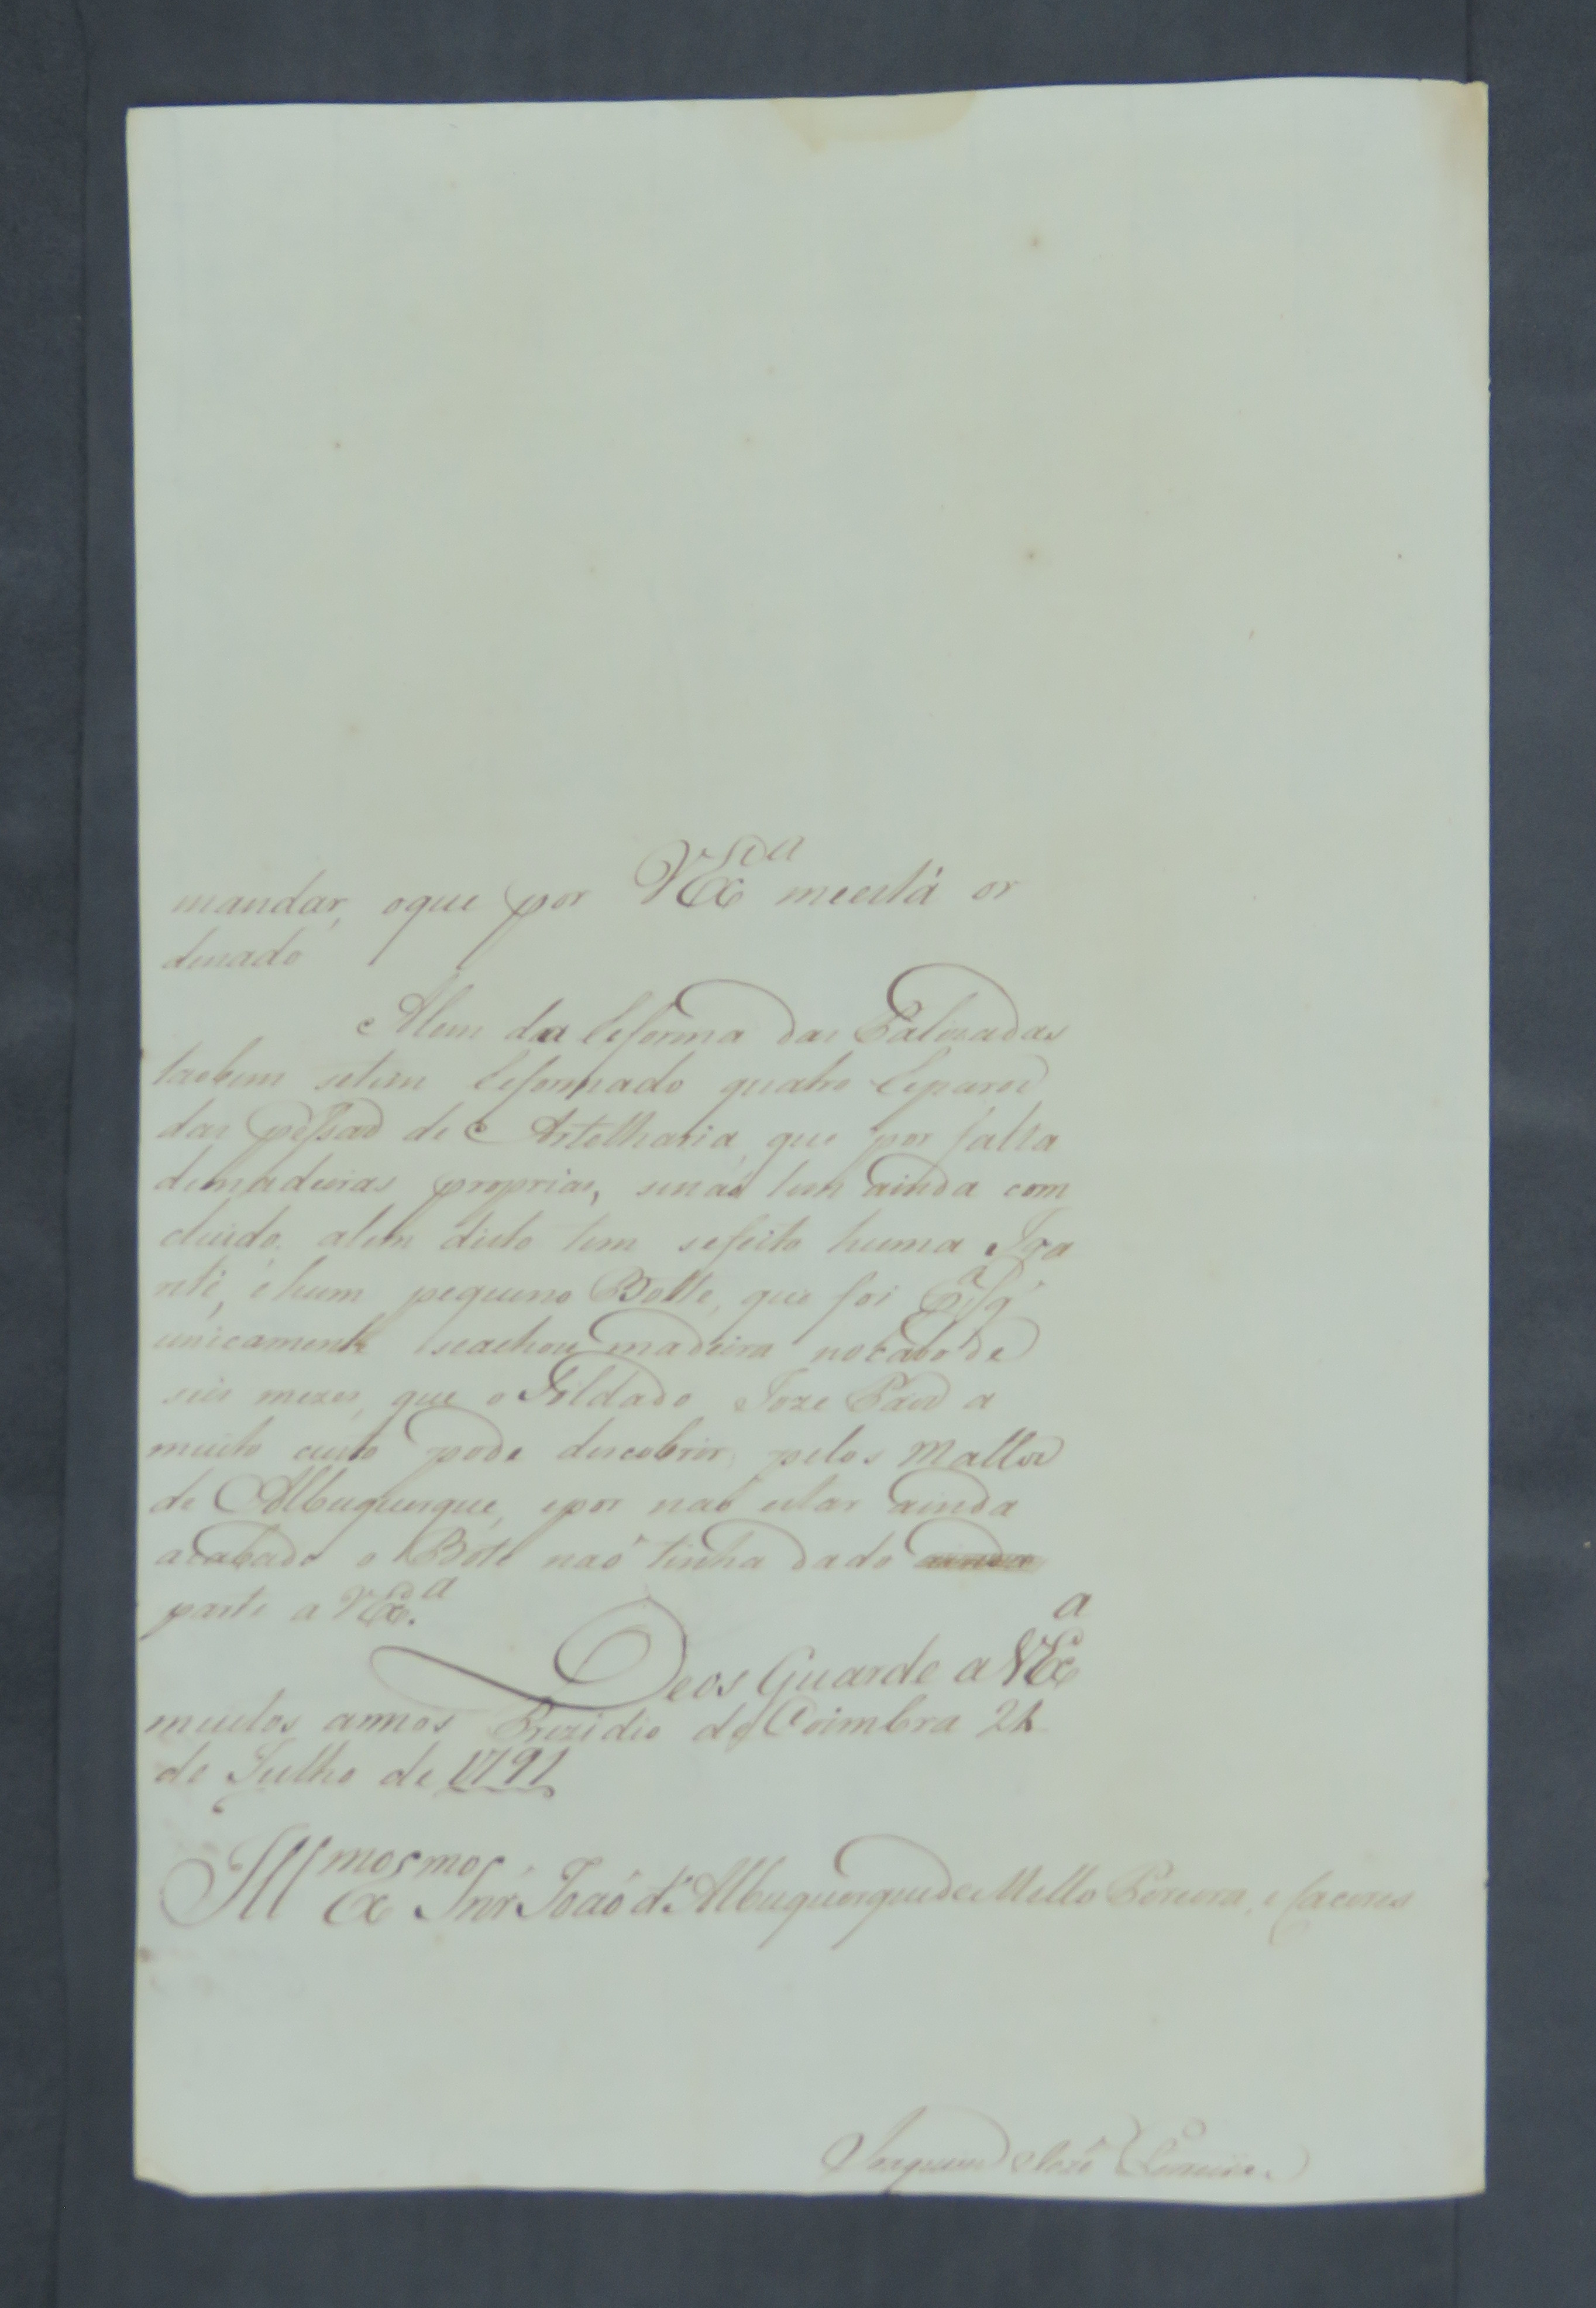 mandar, oque por VEx.ª meestá or
denado
Alem da Reforma das Palizadas
taobem setem Reformado quatro Reparos
das pessas de Artelharia, que por falta
demadeiras proprias, senaõ tem ainda com
cluido, alem disto tem sefeito huma Iga
rite, e hum pequeno Botte, que foi p.ª q.
unicamente seachou madeira nocabo de
seis mezes, que o Soldado Joze Paes a
muito custo pode descobrir, pelos Mattos
de Albuquerque, epor naõ estar ainda
acabado o Bote naõ tinha dado ainda
parte a VEx.ª
Deos Guarde a VExª
muitos annos Prezidio de Coimbra 24
de Julho de 1791
Illmos Exmos Snr. Joaõ d'Albuquerque de Mello Pereira, e Caceres
Joaquim Joze Ferreira